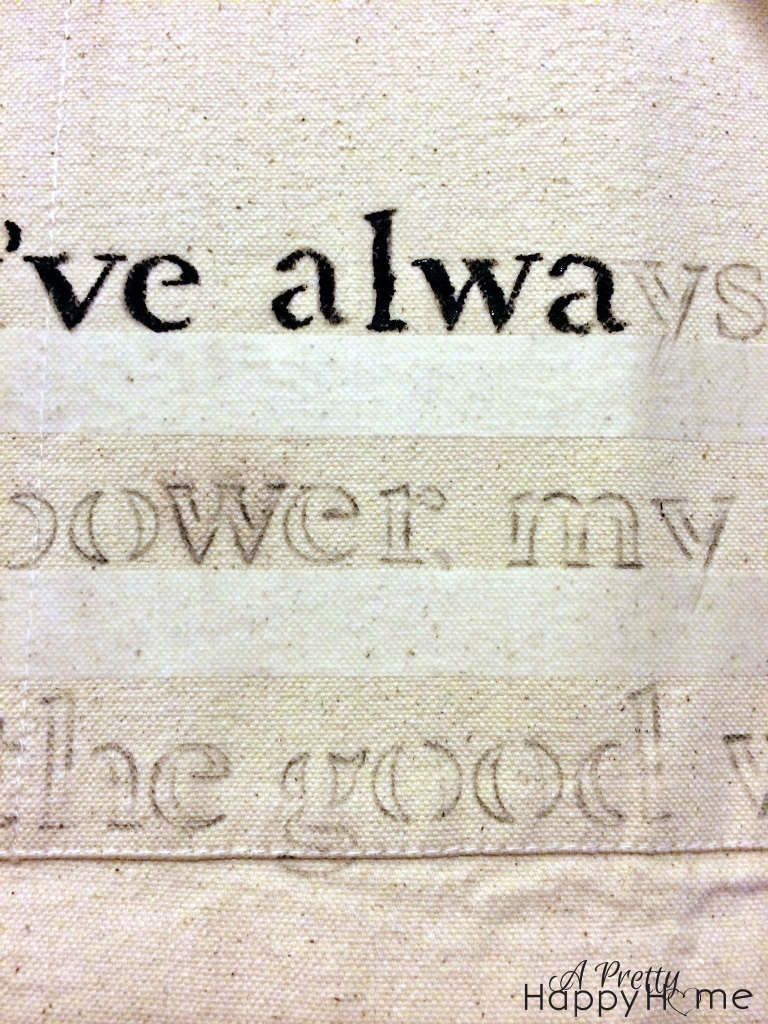 've always
power, my
the good
A Pretty
HappyHome